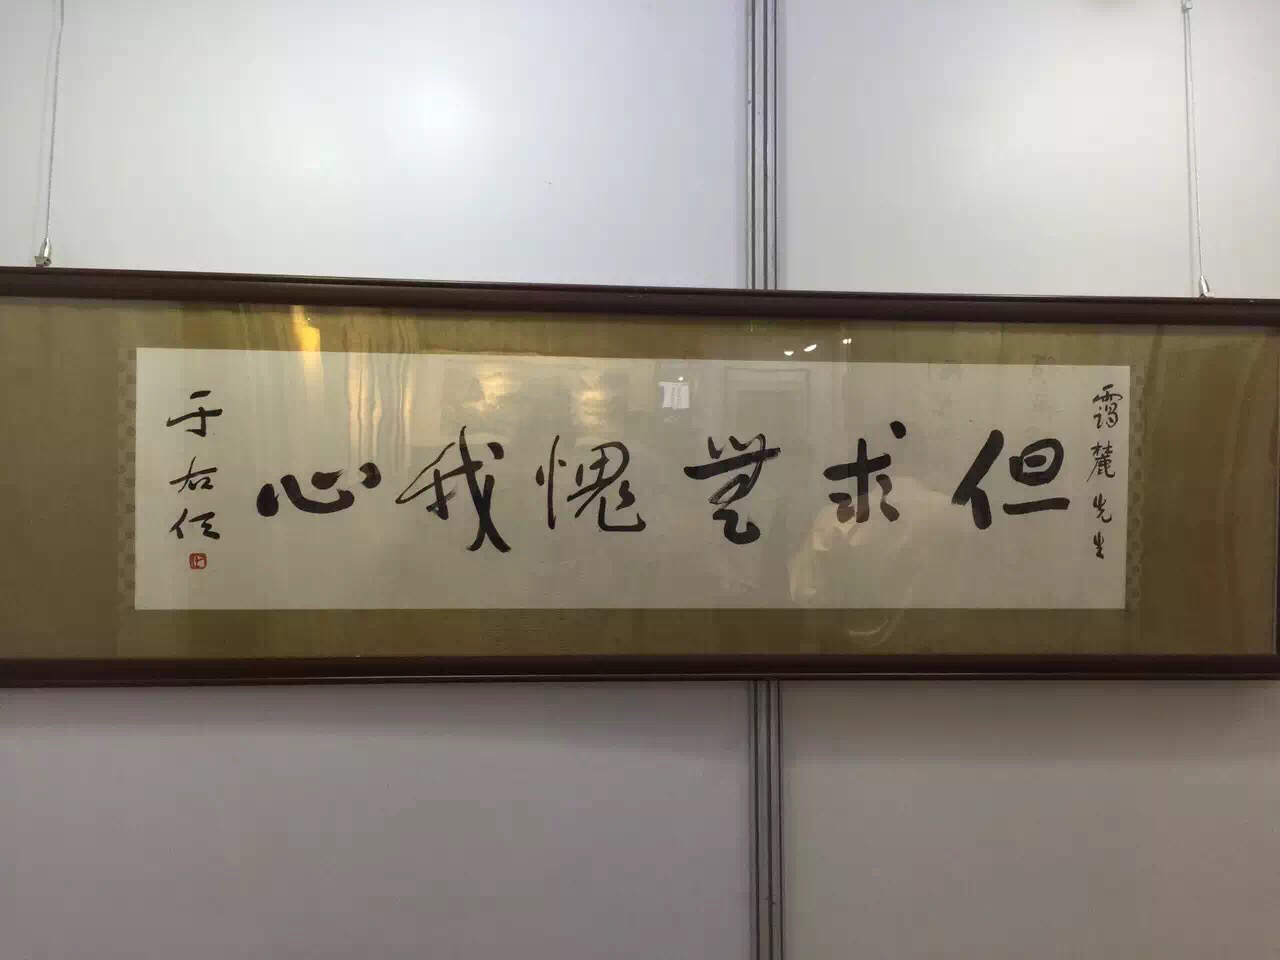 霭麓先生
但求無愧我心
于右任